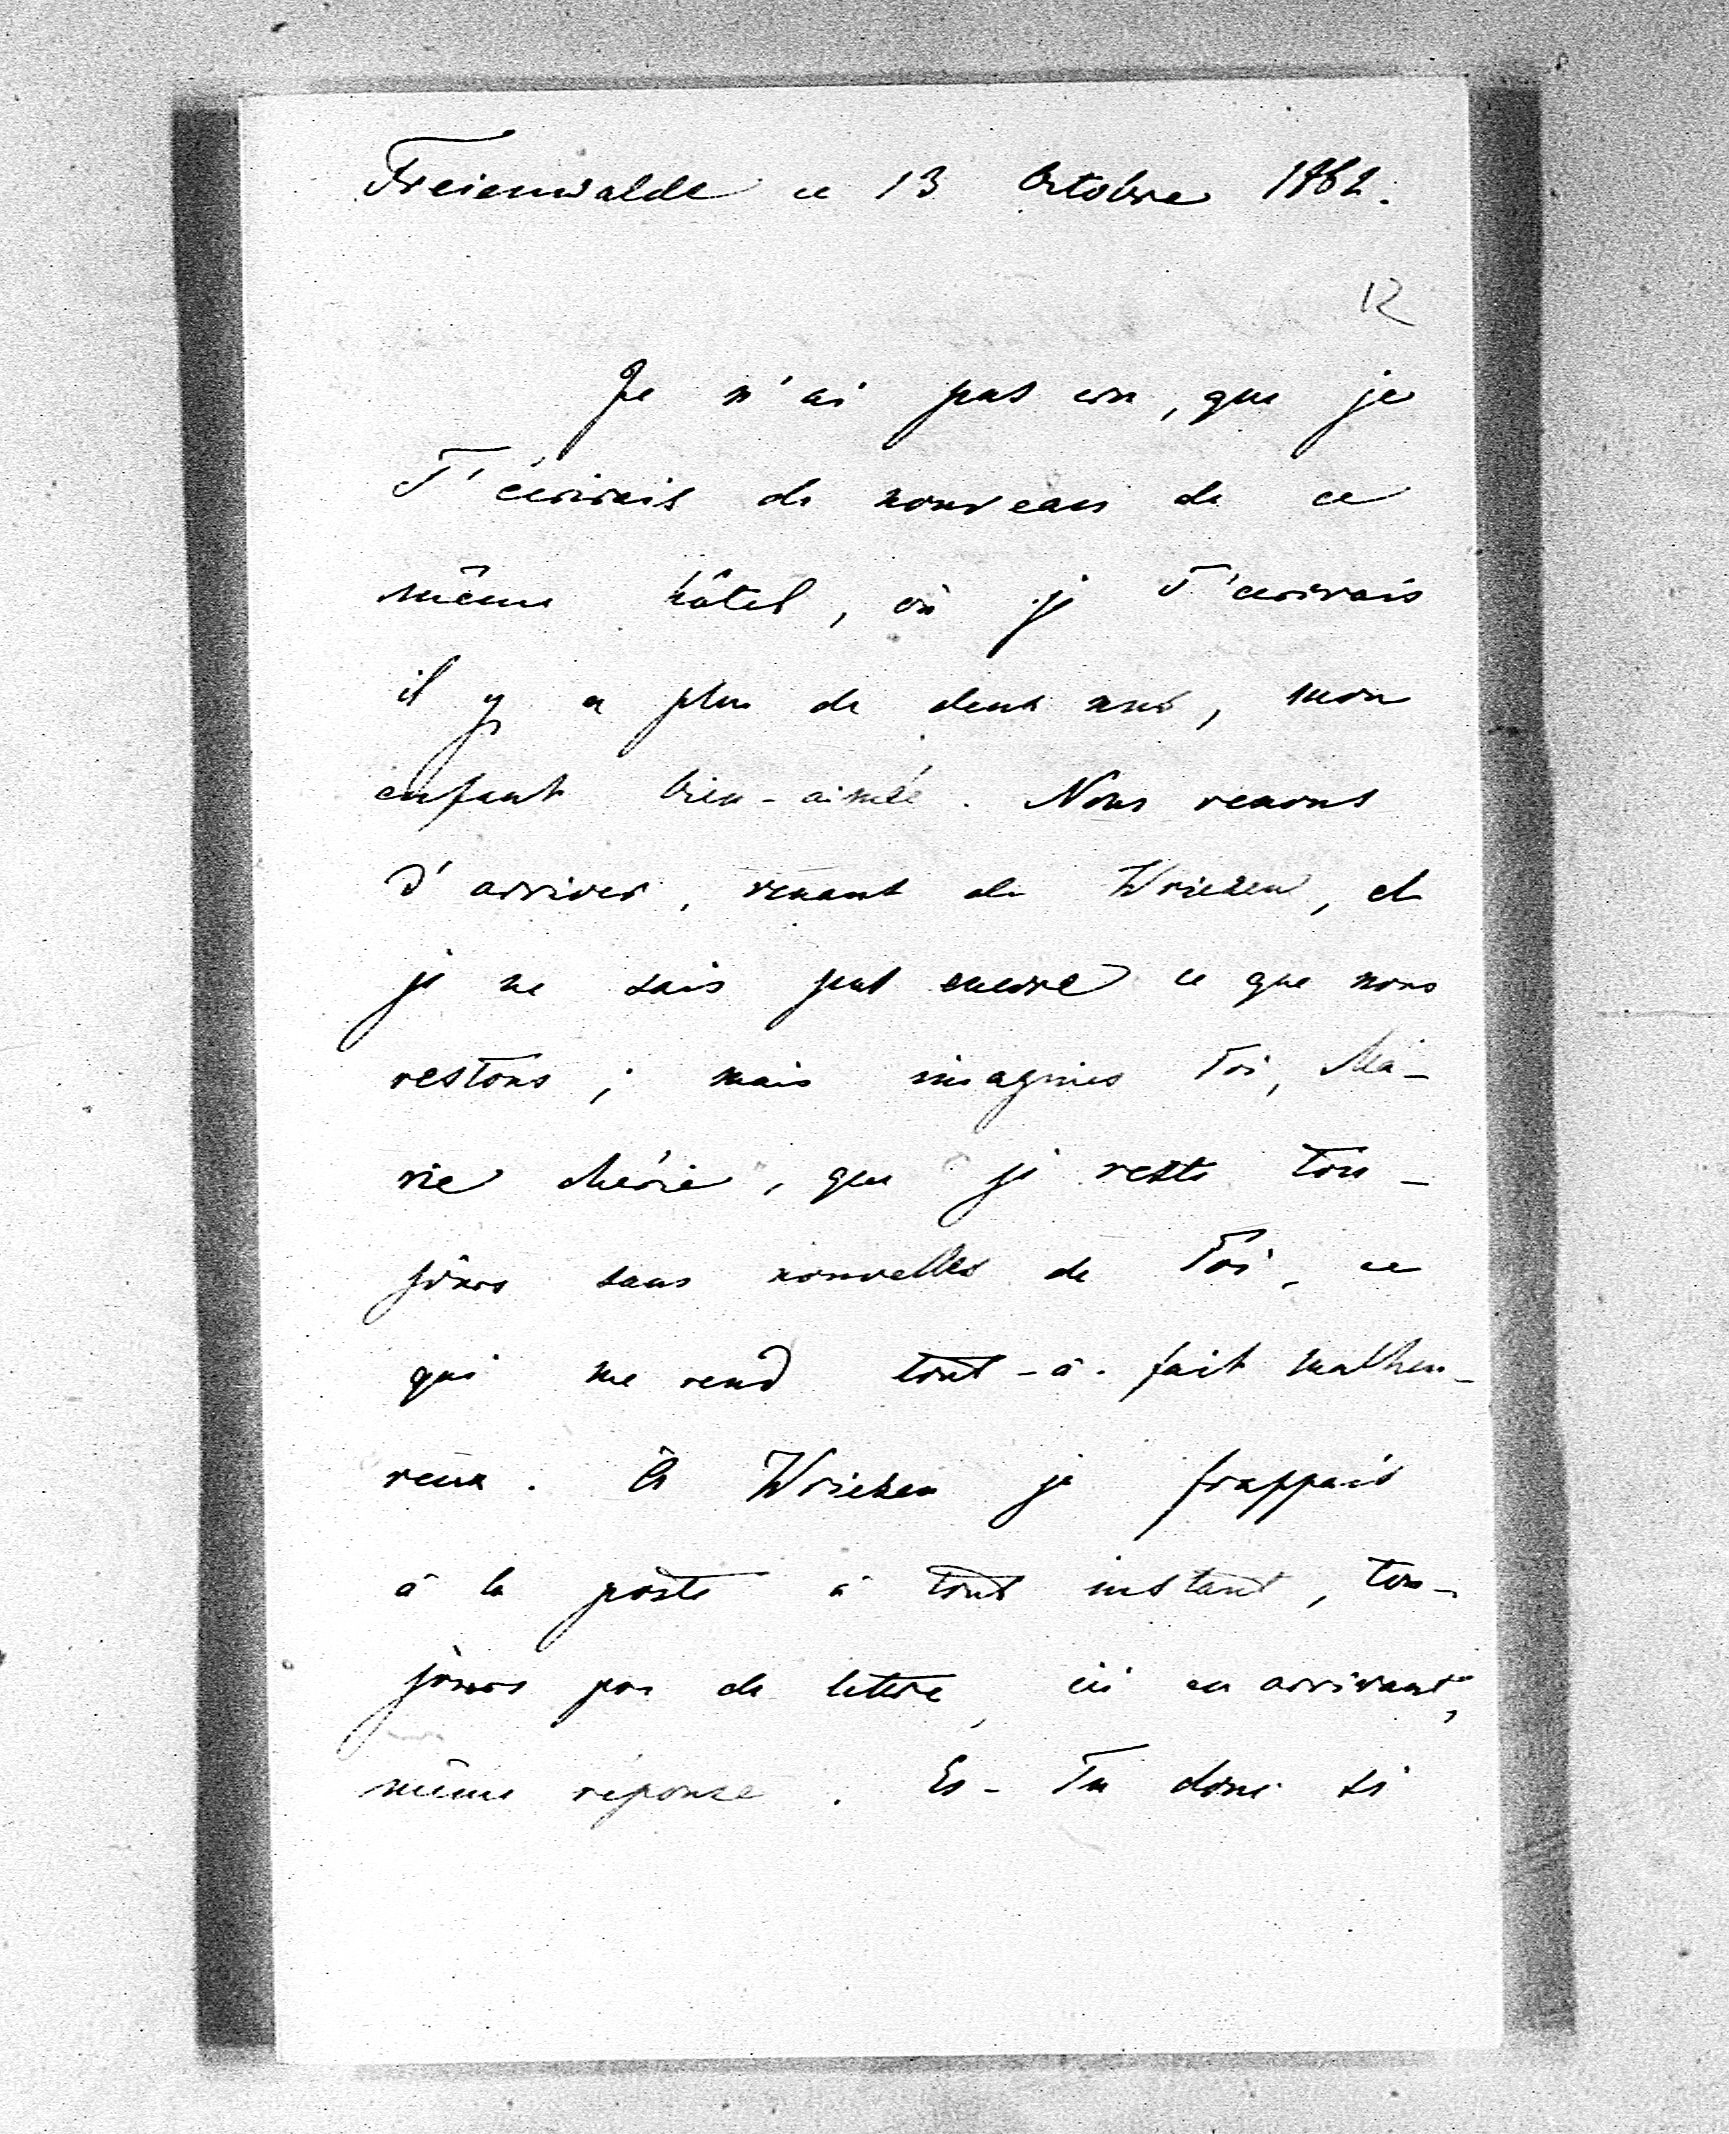 Freienwalde ce 13 Octobre 1862.
12
Je n'ai pas cru, que je
T'écrirais de nouveau de ce
même hôtel, où je T'écrivais
il y a plus de deux ans, mon
enfant bien-aimée. Nous venons
d'arriver, venant de Wriezen, et
je ne sais pas encore ce que nous
restons; mais imagines Toi, Ma-
rie chérie, que je reste tou-
jours sans nouvelles de Toi, ce
qui me rend tout-à-fait malheu-
reux. À Wriezen je frappais
à la poste à tout instant, tou-
jours pas de lettre, ici en arrivant,
même réponse. Es-Tu donc si